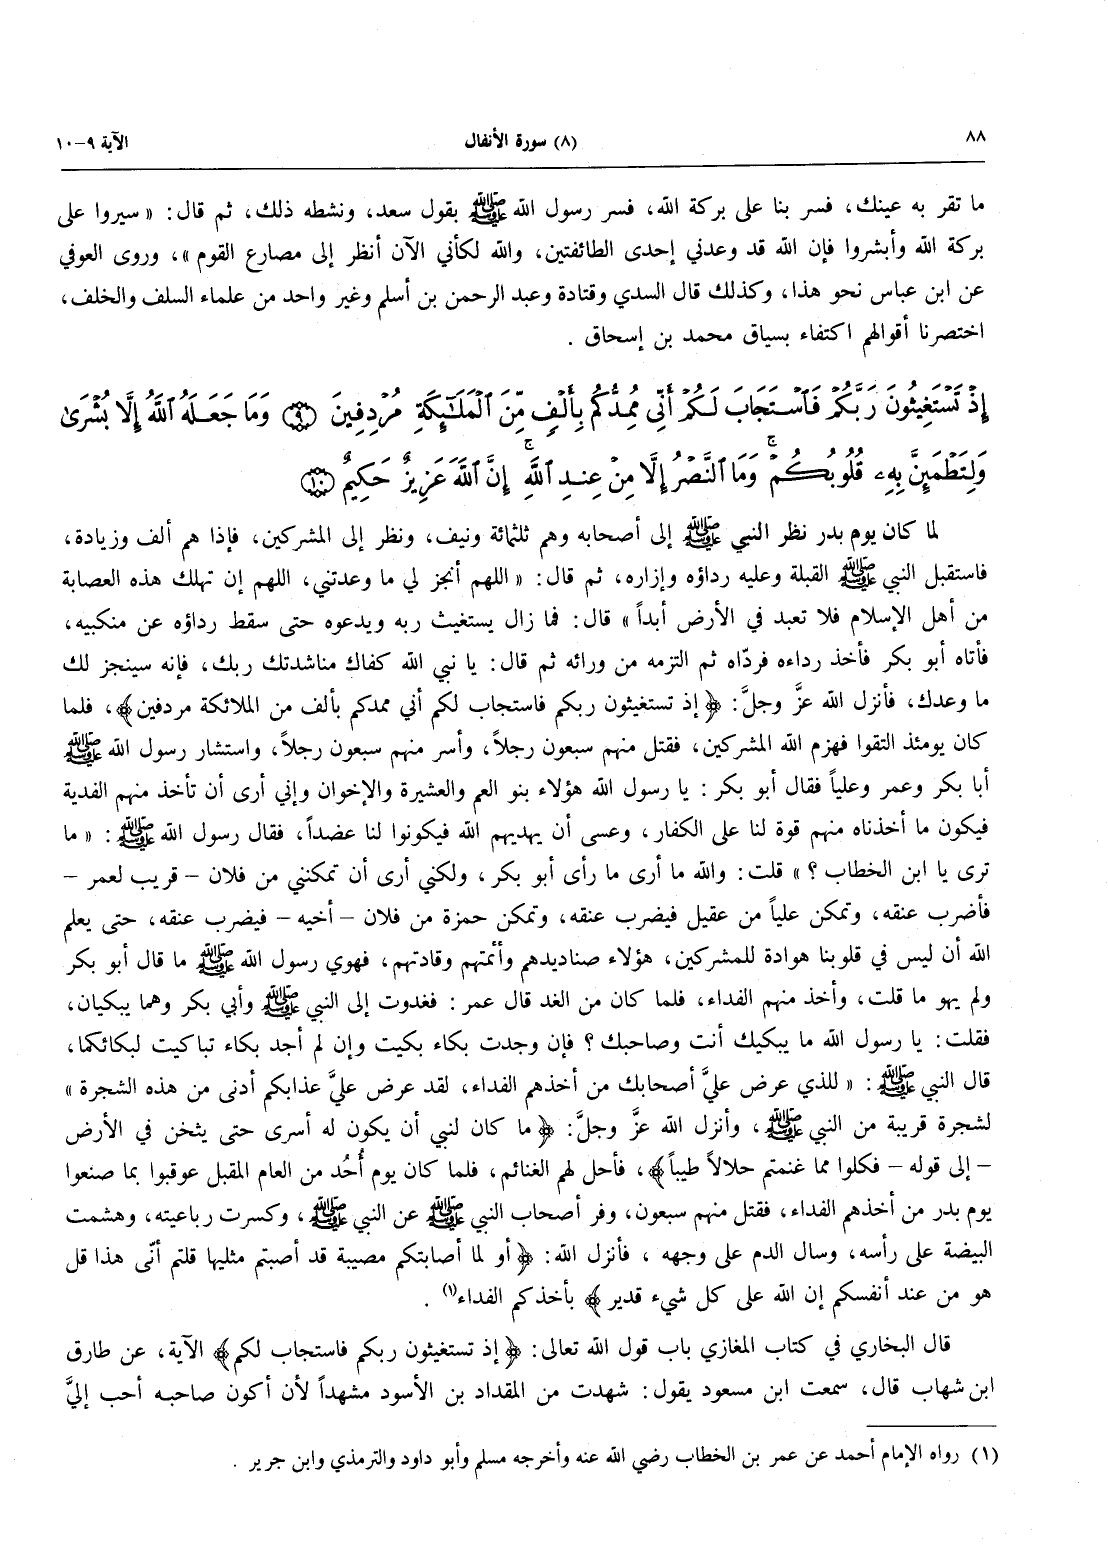 ٨٨
(٨) سورة الأنفال
الآية ٩-١٠
ما تقر به عينك، فسر بنا على بركة الله، فسر رسول الله ﷺ بقول سعد، ونشطه ذلك، ثم قال: « سيروا على
بركة الله وأبشروا فإن الله قد وعدني إحدى الطائفتين، والله لكأني الآن أنظر إلى مصارع القوم »، وروى العوفي
عن ابن عباس نحو هذا، وكذلك قال السدي وقتادة وعبد الرحمن بن أسلم وغير واحد من علماء السلف والخلف،
اختصرنا أقوالهم اكتفاء بسياق محمد بن إسحاق .
إِذْ تَسْتَغِيثُونَ رَبَّكُمْ فَٱسْتَجَابَ لَكُمْ أَنِّى مُمِدُّكُم بِأَلْفٍ مِّنَ ٱلْمَلَـٰٓئِكَةِ مُرْدِفِينَ ﴿٩﴾ وَمَا جَعَلَهُ ٱللَّهُ إِلَّا بُشْرَىٰ
وَلِتَطْمَئِنَّ بِهِۦ قُلُوبُكُمْ ۚ وَمَا ٱلنَّصْرُ إِلَّا مِنْ عِندِ ٱللَّهِ ۚ إِنَّ ٱللَّهَ عَزِيزٌ حَكِيمٌ ﴿١٠﴾
لما كان يوم بدر نظر النبي ﷺ إلى أصحابه وهم ثلثمائة ونيف، ونظر إلى المشركين، فإذا هم ألف وزيادة،
فاستقبل النبي ﷺ القبلة وعليه رداؤه وإزاره، ثم قال: « اللهم أنجز لي ما وعدتني، اللهم إن تهلك هذه العصابة
من أهل الإسلام فلا تعبد في الأرض أبداً » قال: فما زال يستغيث ربه ويدعوه حتى سقط رداؤه عن منكبيه،
فأتاه أبو بكر فأخذ رداءه فردّاه ثم التزمه من ورائه ثم قال: يا نبي الله كفاك مناشدتك ربك، فإنه سينجز لك
ما وعدك، فأنزل الله عزَّ وجلَّ: ﴿ إذ تستغيثون ربكم فاستجاب لكم أني ممدكم بألف من الملائكة مردفين﴾، فلما
كان يومئذ التقوا فهزم الله المشركين، فقتل منهم سبعون رجلاً، وأسر منهم سبعون رجلاً، واستشار رسول الله ﷺ
أبا بكر وعمر وعلياً فقال أبو بكر : يا رسول الله هؤلاء بنو العم والعشيرة والإخوان وإني أرى أن تأخذ منهم الفدية
فيكون ما أخذناه منهم قوة لنا على الكفار، وعسى أن يهديهم الله فيكونوا لنا عضداً، فقال رسول الله ﷺ : « ما
ترى يا ابن الخطاب ؟ » قلت: والله ما أرى ما رأى أبو بكر، ولكني أرى أن تمكنني من فلان – قريب لعمر –
فأضرب عنقه، وتمكن علياً من عقيل فيضرب عنقه، وتمكن حمزة من فلان – أخيه – فيضرب عنقه، حتى يعلم
الله أن ليس في قلوبنا هوادة للمشركين، هؤلاء صناديدهم وأئمتهم وقادتهم، فهوي رسول الله ﷺ ما قال أبو بكر
ولم يهو ما قلت، وأخذ منهم الفداء، فلما كان من الغد قال عمر : فغدوت إلى النبي ﷺ وأبي بكر وهما يبكيان،
فقلت: يا رسول الله ما يبكيك أنت وصاحبك ؟ فإن وجدت بكاء بكيت وإن لم أجد بكاء تباكيت لبكائكما،
قال النبي ﷺ : « للذي عرض عليَّ أصحابك من أخذهم الفداء، لقد عرض عليَّ عذابكم أدنى من هذه الشجرة »
لشجرة قريبة من النبي ﷺ، وأنزل الله عزَّ وجلَّ: ﴿ ما كان لنبي أن يكون له أسرى حتى يثخن في الأرض
– إلى قوله – فكلوا مما غنمتم حلالاً طيباً﴾، فأحل لهم الغنائم، فلما كان يوم أُحُد من العام المقبل عوقبوا بما صنعوا
يوم بدر من أخذهم الفداء، فقتل منهم سبعون، وفر أصحاب النبي ﷺ عن النبي ﷺ، وكسرت رباعيته، وهشمت
البيضة على رأسه، وسال الدم على وجهه ، فأنزل الله: ﴿ أو لما أصابتكم مصيبة قد أصبتم مثليها قلتم أنّى هذا قل
هو من عند أنفسكم إن الله على كل شيء قدير ﴾ بأخذكم الفداء(١) .
قال البخاري في كتاب المغازي باب قول الله تعالى: ﴿ إذ تستغيثون ربكم فاستجاب لكم﴾ الآية، عن طارق
ابن شهاب قال، سمعت ابن مسعود يقول: شهدت من المقداد بن الأسود مشهداً لأن أكون صاحبه أحب إليَّ
(١) رواه الإمام أحمد عن عمر بن الخطاب رضي الله عنه وأخرجه مسلم وأبو داود والترمذي وابن جرير .